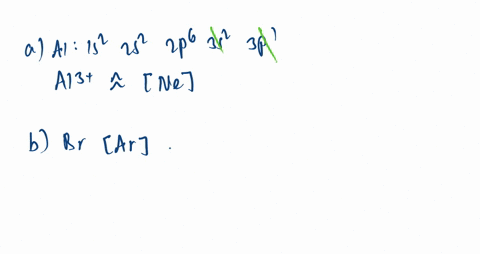 a) Al: 1s² 2s² 2p⁶ 3s² 3p¹
Al3+ ≈ [Ne]
b) Br [Ar]